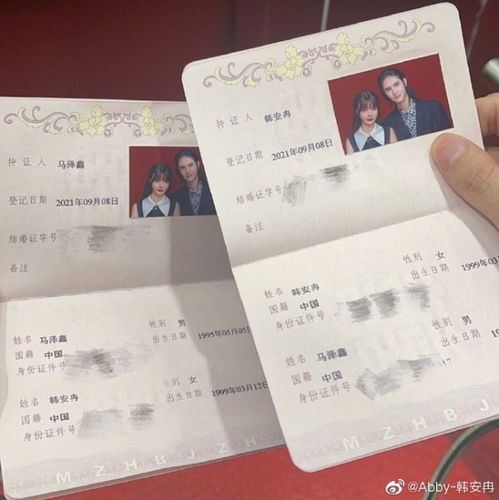 持证人 马泽鑫
登记日期 2021年09月08日
结婚证字号
备注
姓名 马泽鑫 性别 男
国籍 中国 出生日期 1995年05月05日
身份证件号
姓名 韩安冉 性别 女
国籍 中国 出生日期 1999年03月12日
身份证件号
MZHBJ
持证人 韩安冉
登记日期 2021年09月08日
结婚证字号
备注
姓名 韩安冉 性别 女
国籍 中国 出生日期 1999年03月
身份证件号
姓名 马泽鑫 性别 男
国籍 中国 出生日期 1995年
身份证件号
MZHBJ
@Abby-韩安冉